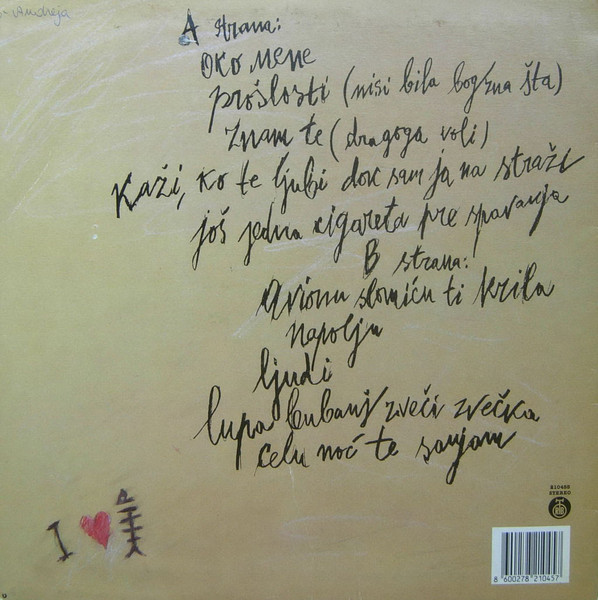 Andreja
A strana:
oko mene
prošlosti (nisi bila bogzna šta)
znam te (dragoga voli)
Kaži, ko te ljubi dok sam ja na straži
još jedna cigareta pre spavanja
B strana:
Avionu slomiću ti krila
napolju
ljudi
lupa bubanj zveči zvečka
celu noć te sanjam
I
210455
STEREO
8 600278 210457